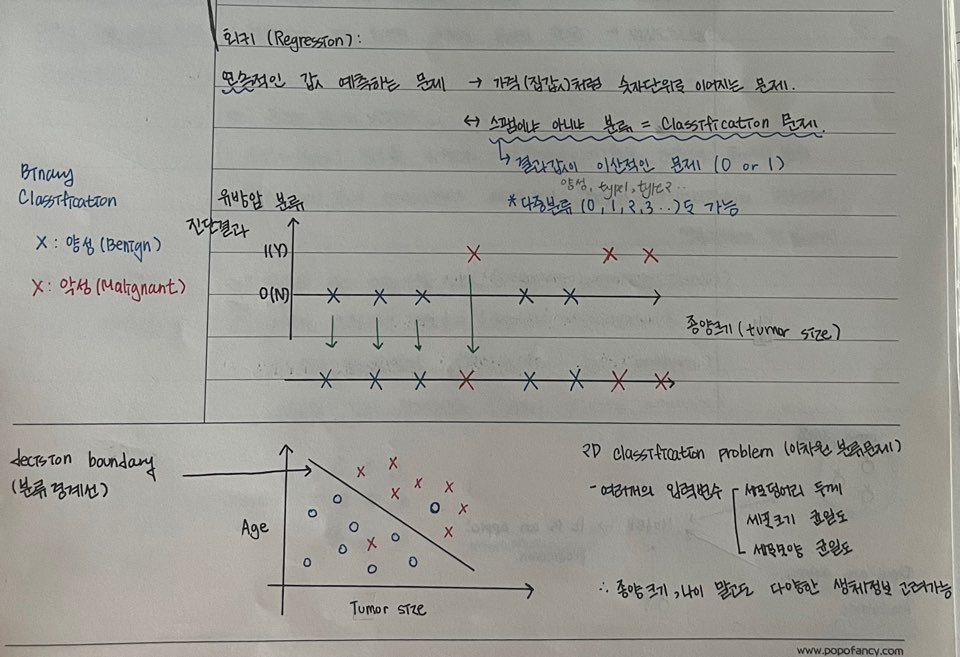 회귀 (Regression) :
연속적인 값 예측하는 문제 → 가격(집값)처럼 숫자단위로 이어지는 문제.
↔ 스팸이냐 아니냐 분류 = Classification 문제.
↳ 결과값이 이산적인 문제 (0 or 1)
양성, type1, type2 ..
*다중분류 (0, 1, 2, 3 ..)도 가능
Binary
Classification
X : 양성 (Benign)
X : 악성 (Malignant)
유방암 분류
진단결과
1(Y)
0(N)
종양크기 (tumor size)
decision boundary
(분류 경계선)
Age
Tumor size
2D classification problem (이차원 분류문제)
- 여러개의 입력변수
세포덩어리 두께
세포크기 균일도
세포모양 균일도
∴ 종양크기, 나이 말고도 다양한 생체정보 고려가능
www.popofancy.com